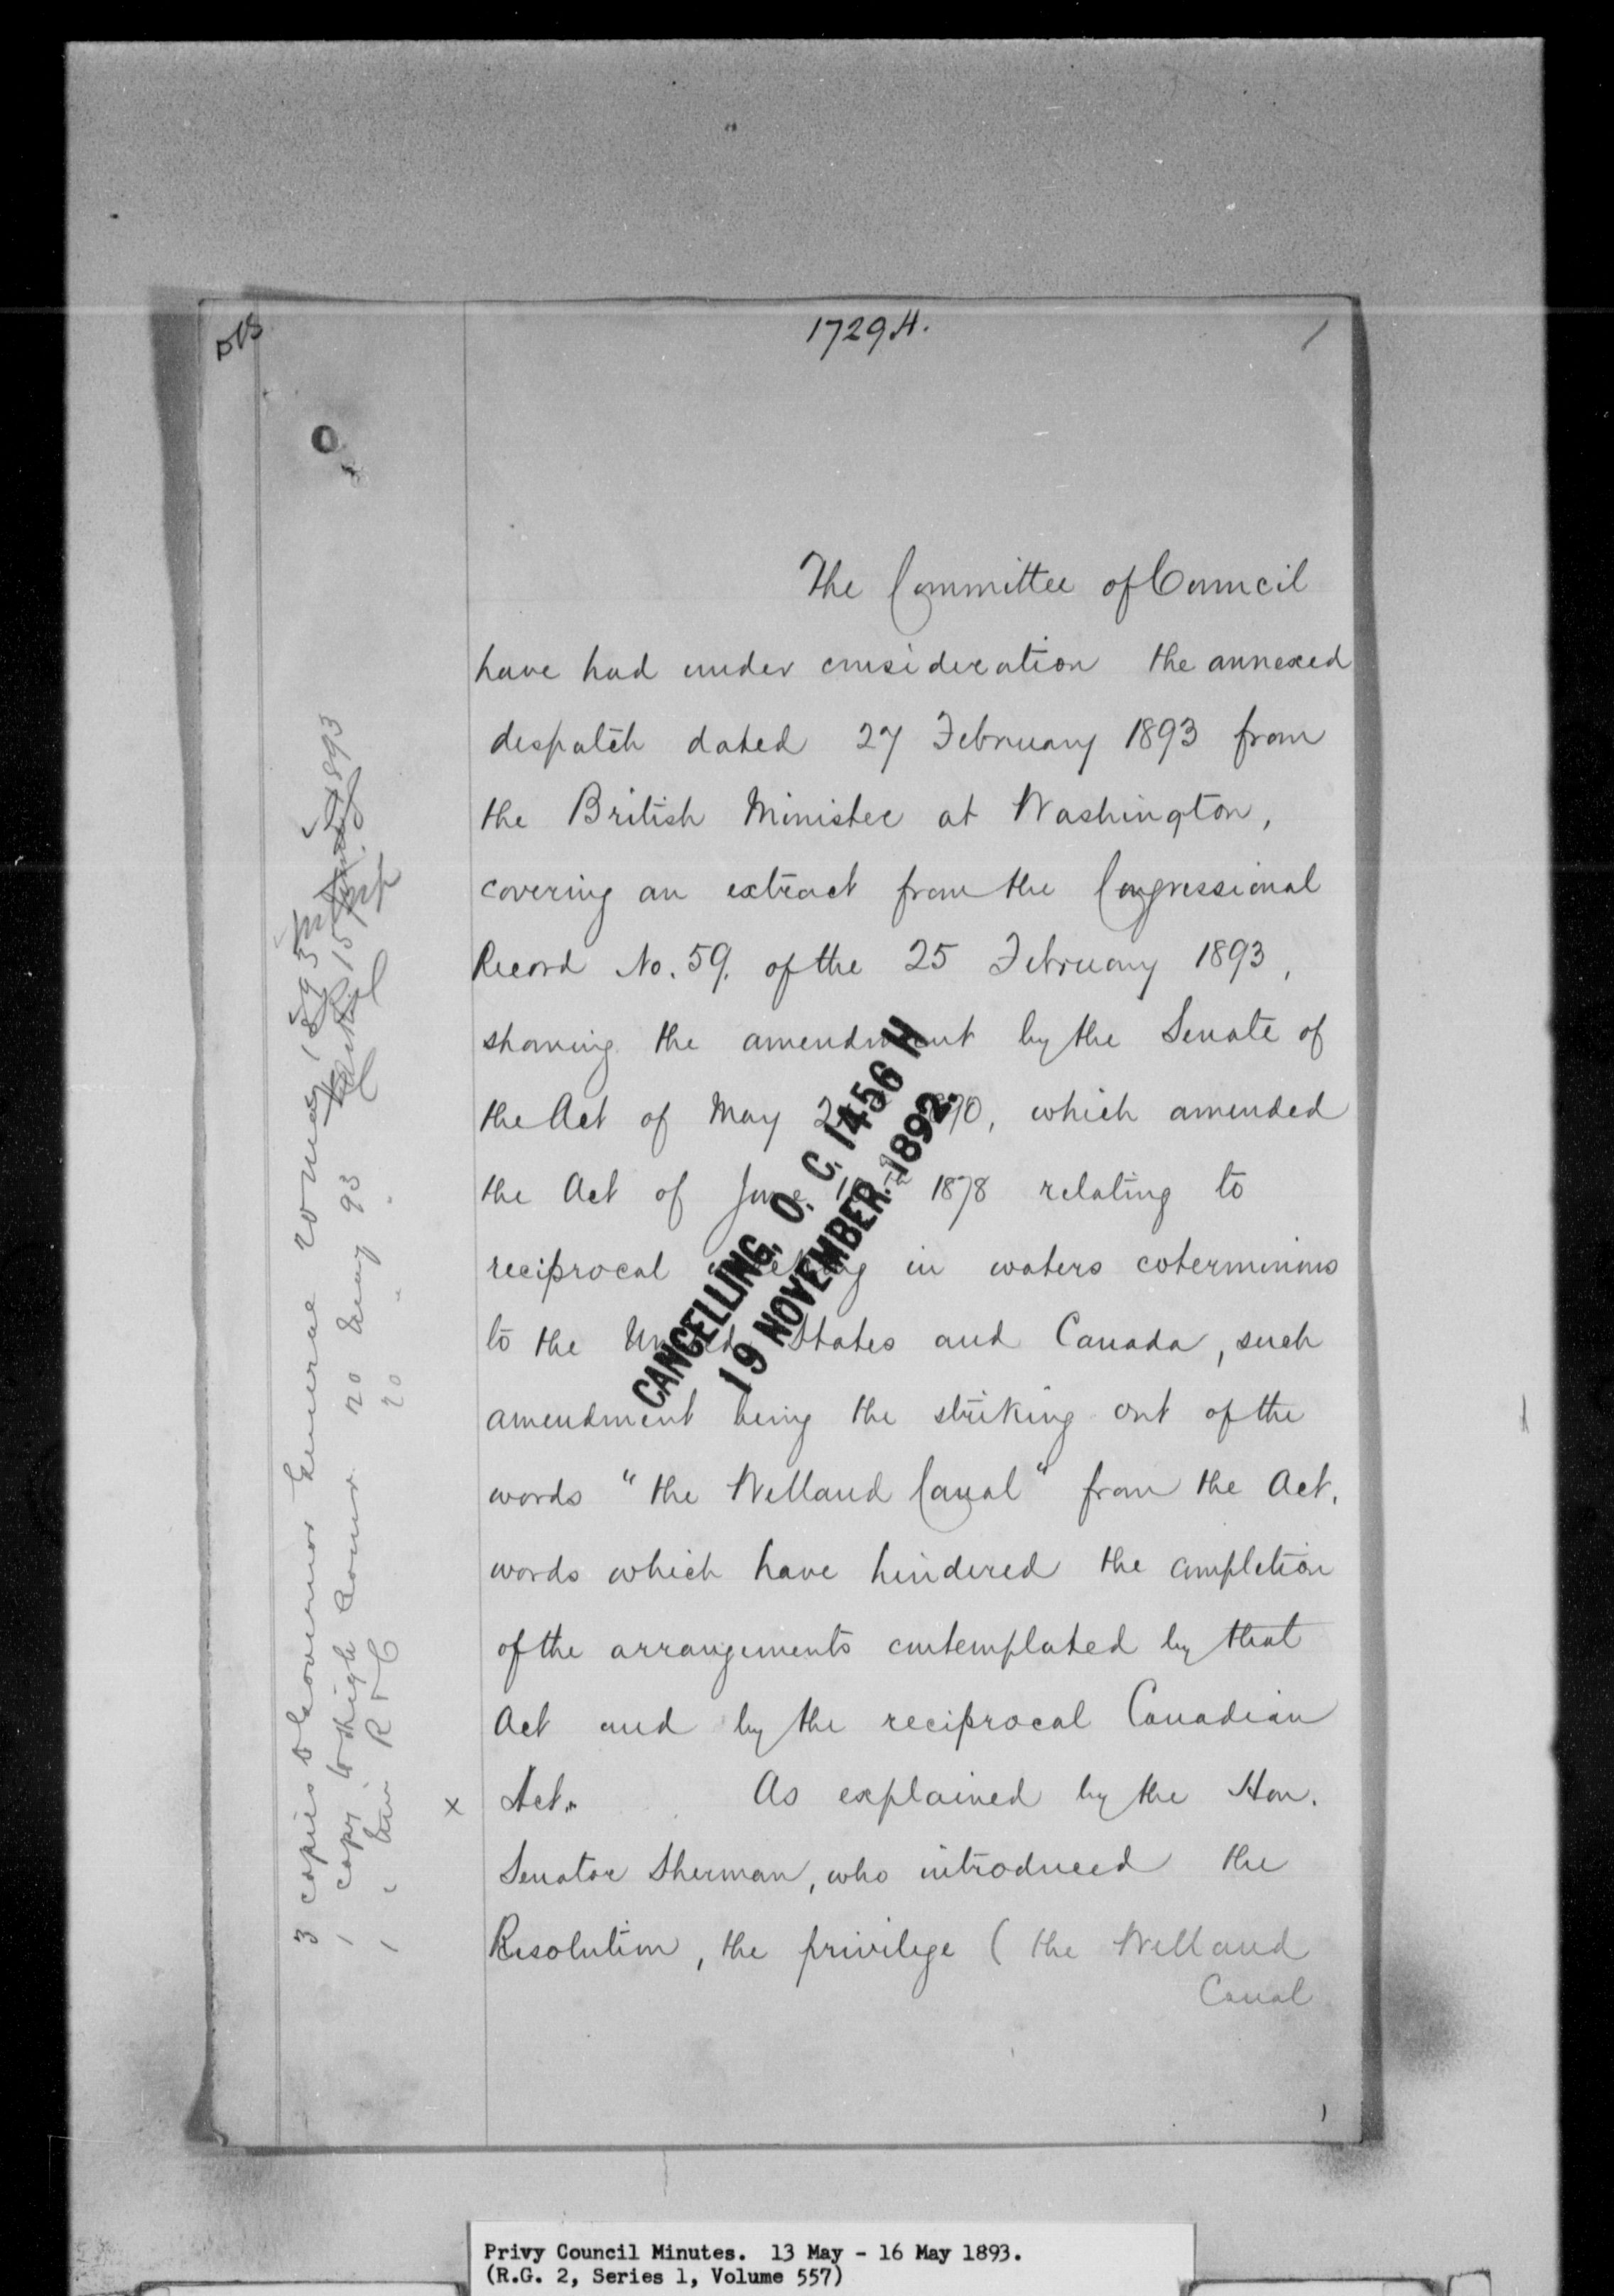 1729 H.
The Committee of Council
have had under consideration the annexed
despatch dated 27 February 1893 from
the British Minister at Washington,
covering an extract from the Congressional
Record No. 59. of the 25 February 1893,
showing the amendment by the Senate of
the Act of May 2 1890, which amended
the Act of June 1 1878 relating to
reciprocal wrecking in waters coterminous
to the United States and Canada, such
amendment being the striking out of the
words "the Welland Canal" from the Act,
words which have hindered the completion
of the arrangements contemplated by that
Act and by the reciprocal Canadian
x Act. As explained by the Hon.
Senator Sherman, who introduced the
Resolution, the privilege (the Welland
Canal
CANCELLING, O. C. 1456 H
19 NOVEMBER 1892.
3 copies to Governor General 20 May 1893
1 copy to High Commr 20 May 93
1 " 20 "
Privy Council Minutes. 13 May - 16 May 1893.
(R.G. 2, Series 1, Volume 557)